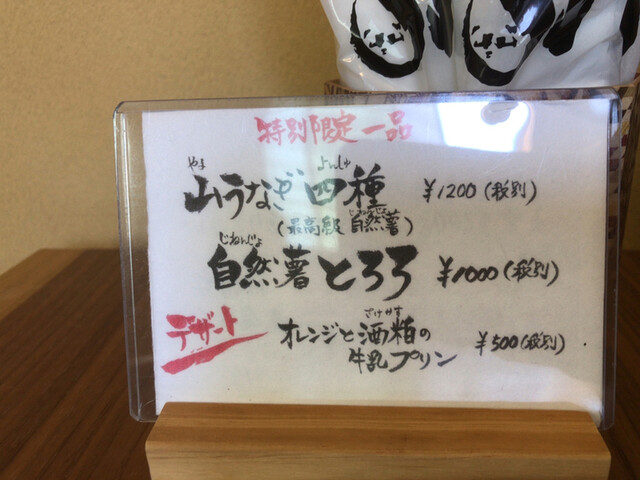 特別限定一品
やま よんしゅ
山うなぎ四種 ¥1200(税別)
じねんじょ
(最高級 自然薯)
じねんじょ
自然薯とろろ ¥1000(税別)
デザート
さけかす
オレンジと酒粕の
牛乳プリン ¥500(税別)